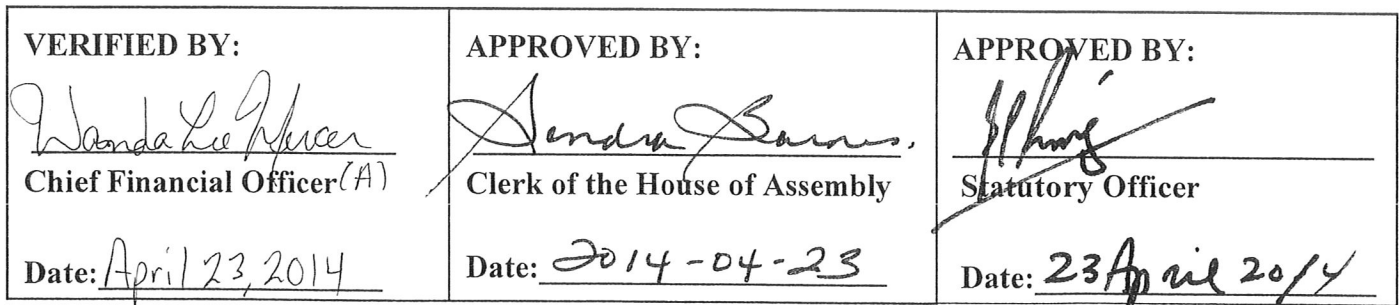 VERIFIED BY:
Wanda Lee Mercer
Chief Financial Officer (A)
Date: April 23, 2014
APPROVED BY:
Sandra Barnes.
Clerk of the House of Assembly
Date: 2014-04-23
APPROVED BY:
Statutory Officer
Date: 23 April 2014